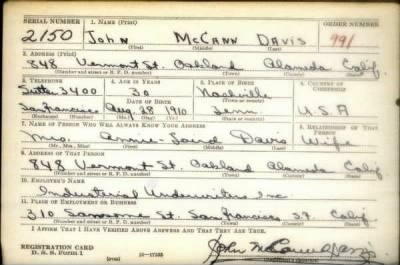 SERIAL NUMBER 1. NAME (Print) ORDER NUMBER
2150 JOHN McCANN DAVIS 991
(First) (Middle) (Last)
2. ADDRESS (Print)
848 Vermont St. Oakland Alameda Calif
(Number and street or R. F. D. number) (Town) (County) (State)
3. TELEPHONE 4. AGE IN YEARS 5. PLACE OF BIRTH 6. COUNTRY OF CITIZENSHIP
Sutter 3400 30 Nashville
DATE OF BIRTH (Town or county)
San Francisco Aug 28 1910 Tenn. U.S.A
(Exchange) (Number) (Mo.) (Day) (Yr.) (State or country)
7. NAME OF PERSON WHO WILL ALWAYS KNOW YOUR ADDRESS 8. RELATIONSHIP OF THAT PERSON
Mrs. Annie Davis Wife
(Mr., Mrs., Miss) (First) (Middle) (Last)
9. ADDRESS OF THAT PERSON
848 Vermont St. Oakland Alameda Calif
(Number and street or R. F. D. number) (Town) (County) (State)
10. EMPLOYER'S NAME
Industrial Underwriters Inc
11. PLACE OF EMPLOYMENT OR BUSINESS
310 Sansome St. San Francisco Calif.
(Number and street or R. F. D. number) (Town) (County) (State)
I AFFIRM THAT I HAVE VERIFIED ABOVE ANSWERS AND THAT THEY ARE TRUE.
REGISTRATION CARD
D. S. S. Form 1 (over) John McCann Davis